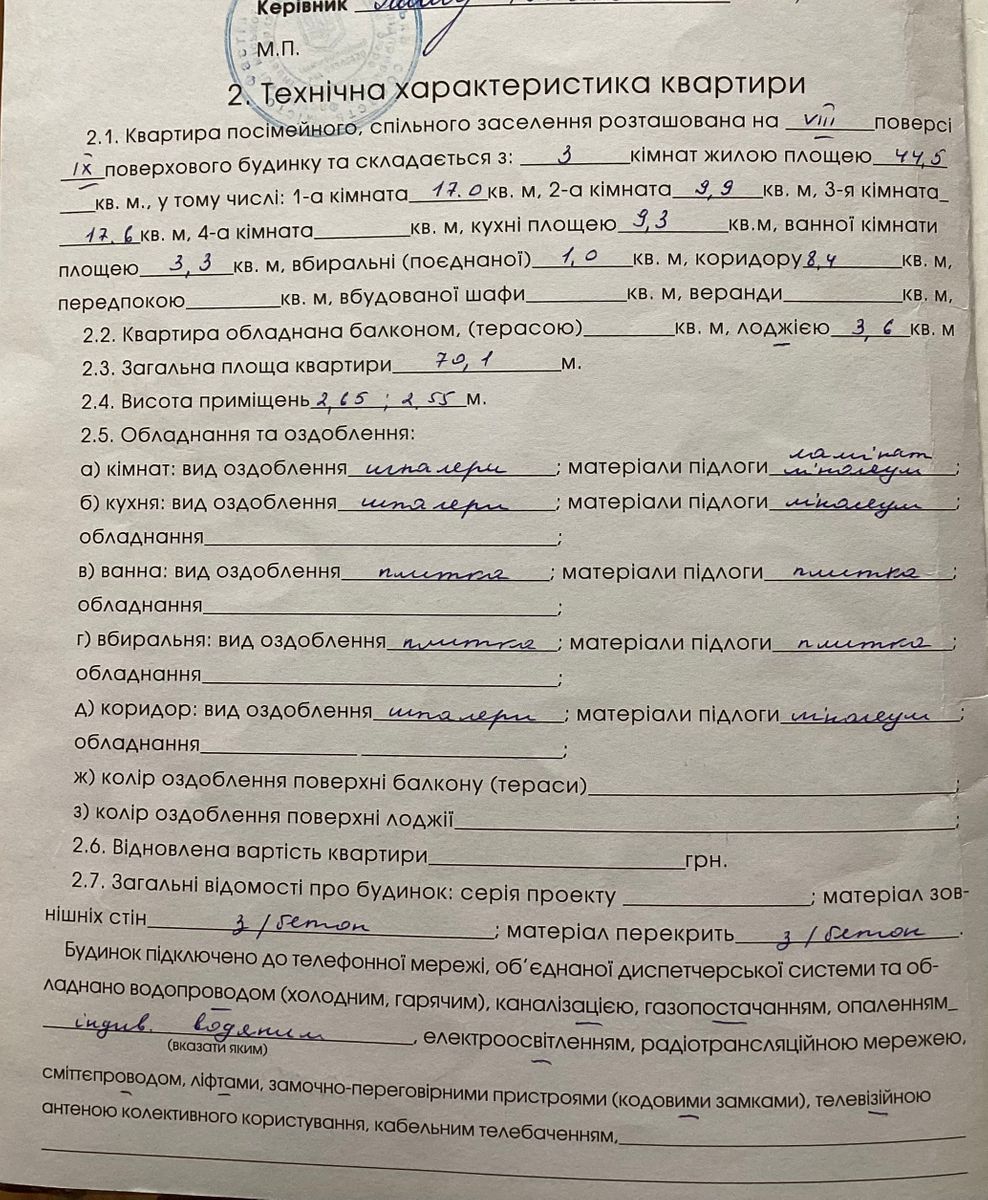 Керівник
М.П.
2. Технічна характеристика квартири
2.1. Квартира посімейного, спільного заселення розташована на VIII поверсі
IX поверхового будинку та складається з: 3 кімнат жилою площею 44,5
кв. м., у тому числі: 1-а кімната 17.0 кв. м, 2-а кімната 9,9 кв. м, 3-я кімната
17.6 кв. м, 4-а кімната кв. м, кухні площею 9,3 кв.м, ванної кімнати
площею 3,3 кв. м, вбиральні (поєднаної) 1,0 кв. м, коридору 8,4 кв. м,
передпокою кв. м, вбудованої шафи кв. м, веранди кв. м,
2.2. Квартира обладнана балконом, (терасою) кв. м, лоджією 3,6 кв. м
2.3. Загальна площа квартири 70,1 м.
2.4. Висота приміщень 2,65 ; 2,55 м.
2.5. Обладнання та оздоблення:
а) кімнат: вид оздоблення шпалери ; матеріали підлоги ламінат лінолеум ;
б) кухня: вид оздоблення шпалери ; матеріали підлоги лінолеум ;
обладнання ;
в) ванна: вид оздоблення плитка ; матеріали підлоги плитка ;
обладнання ;
г) вбиральня: вид оздоблення плитка ; матеріали підлоги плитка ;
обладнання ;
д) коридор: вид оздоблення шпалери ; матеріали підлоги лінолеум ;
обладнання ;
ж) колір оздоблення поверхні балкону (тераси) ;
з) колір оздоблення поверхні лоджії ;
2.6. Відновлена вартість квартири грн.
2.7. Загальні відомості про будинок: серія проекту ; матеріал зов-
нішніх стін з/бетон ; матеріал перекрить з/бетон .
Будинок підключено до телефонної мережі, об'єднаної диспетчерської системи та об-
ладнано водопроводом (холодним, гарячим), каналізацією, газопостачанням, опаленням
індив. водяним , електроосвітленням, радіотрансляційною мережею,
(вказати яким)
сміттєпроводом, ліфтами, замочно-переговірними пристроями (кодовими замками), телевізійною
антеною колективного користування, кабельним телебаченням,